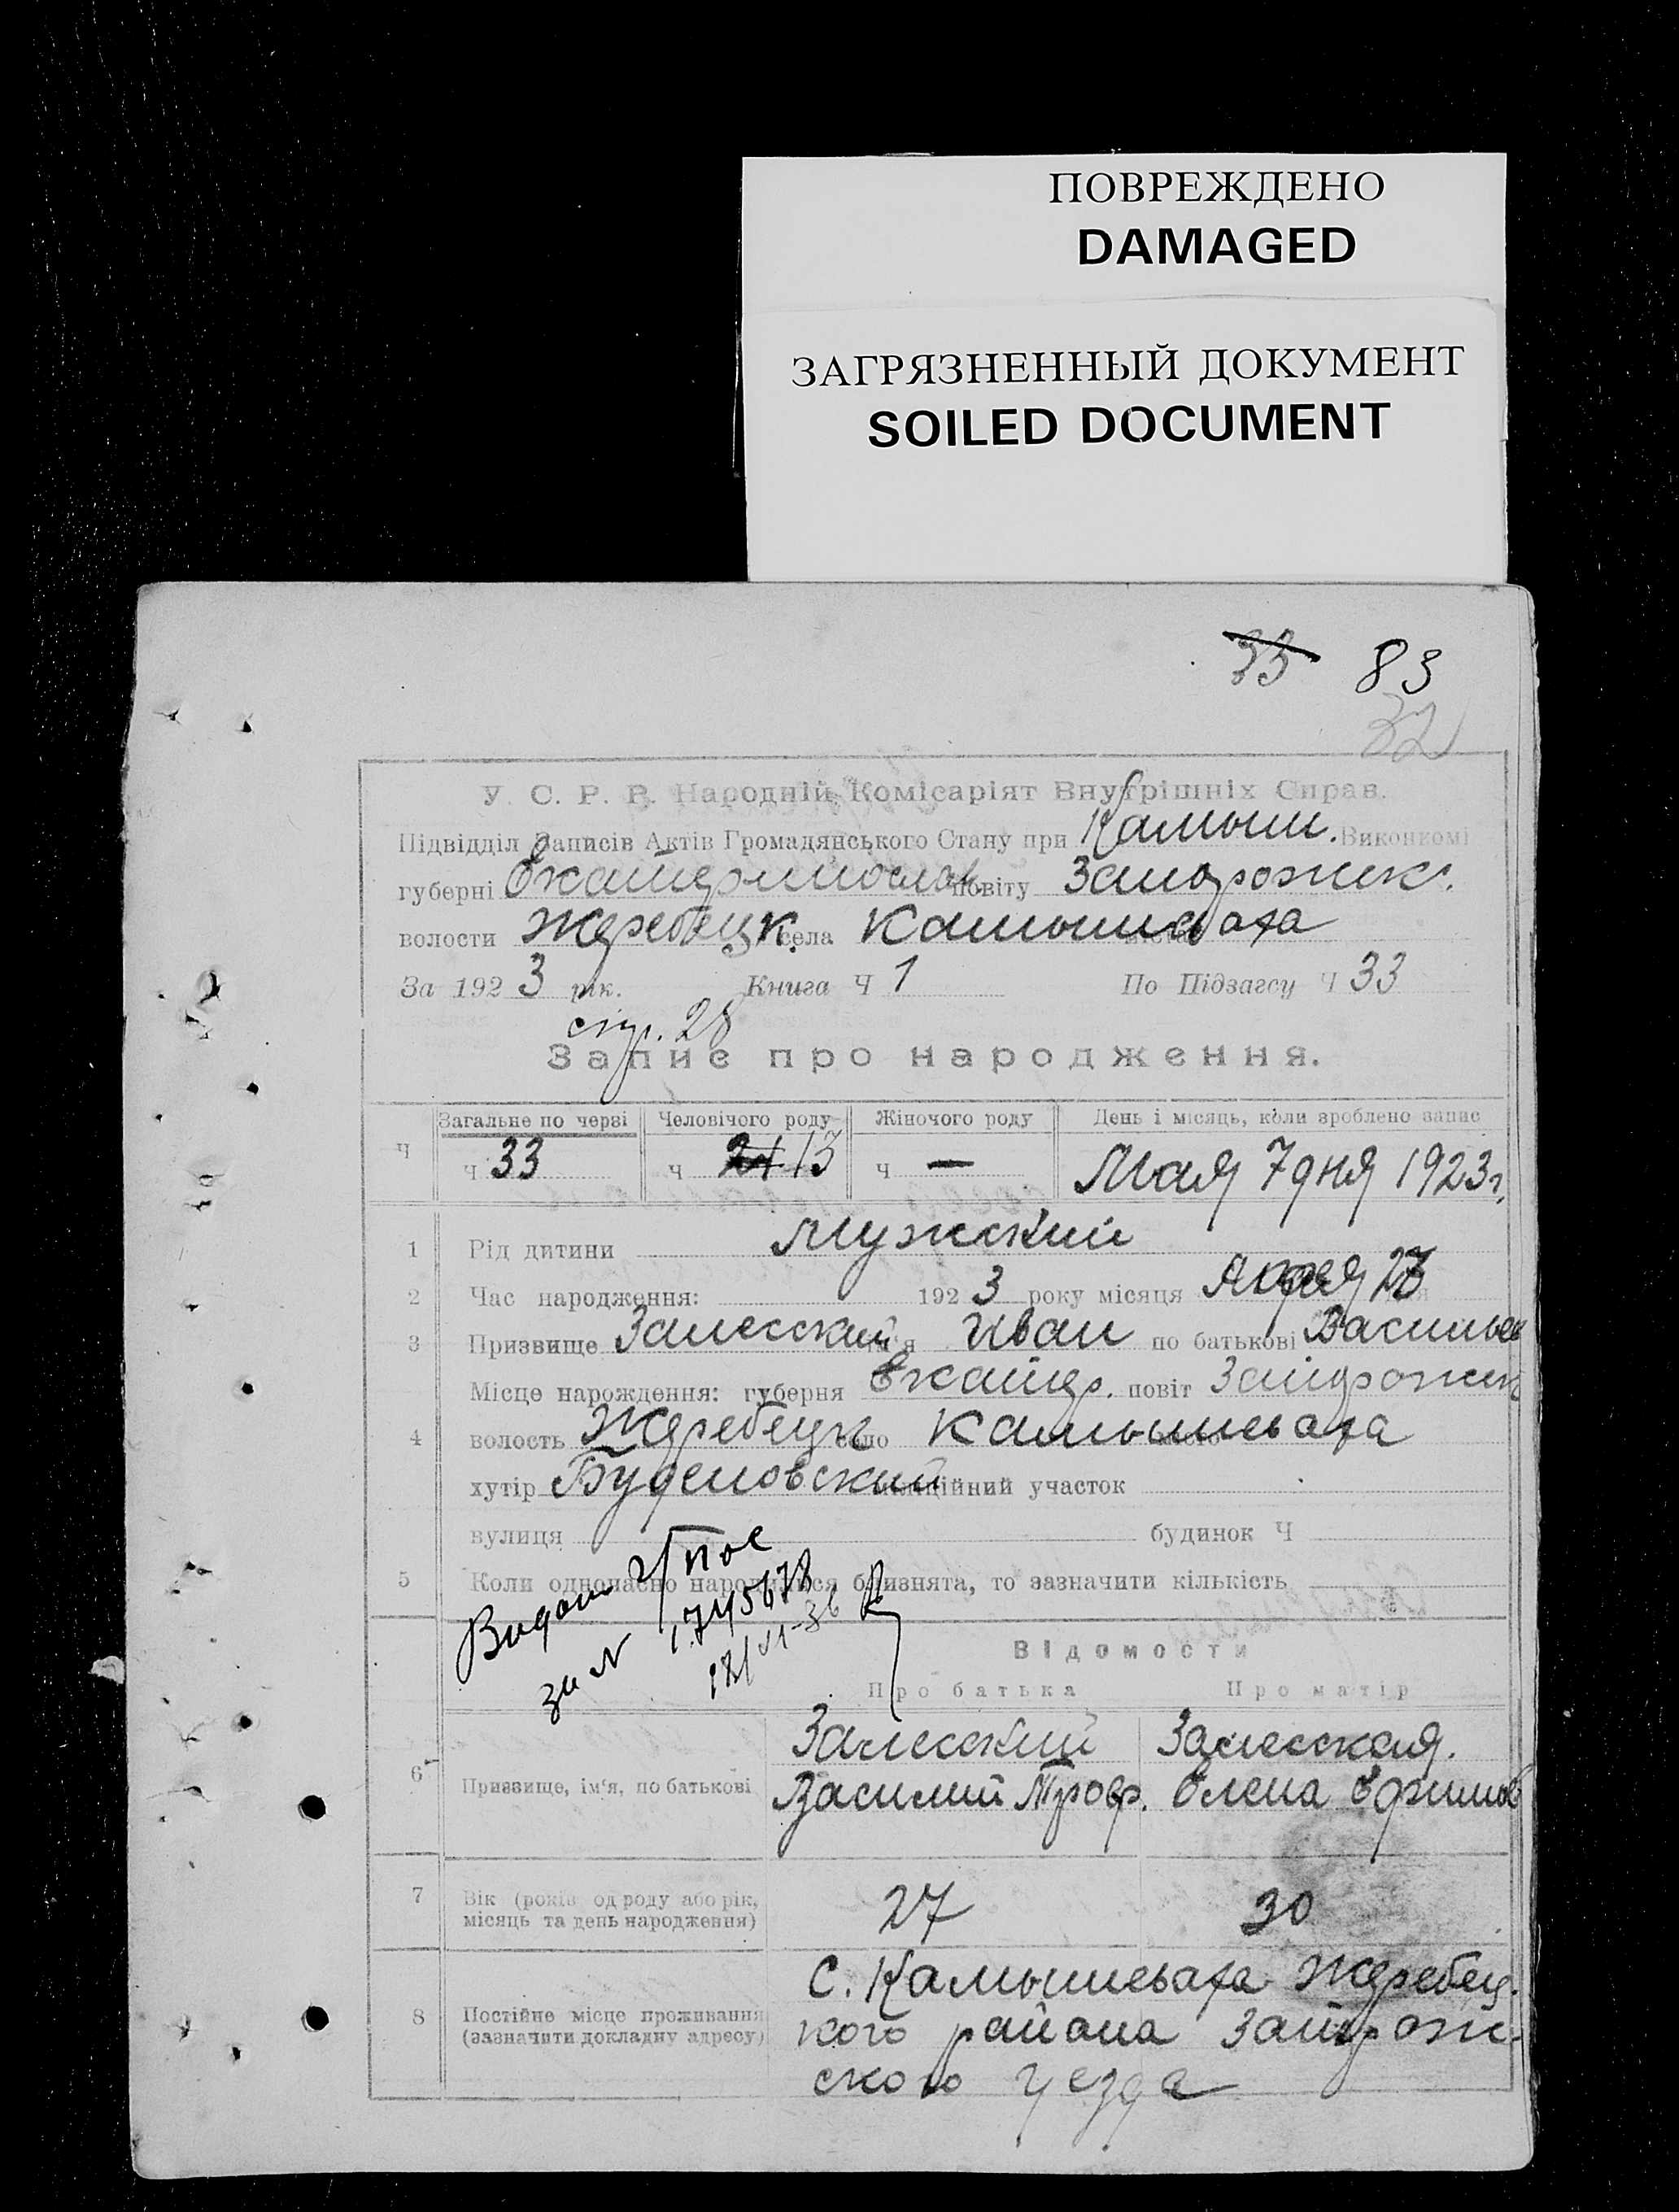 ПОВРЕЖДЕНО
DAMAGED
ЗАГРЯЗНЕННЫЙ ДОКУМЕНТ
SOILED DOCUMENT
33 83
32
У. С. Р. Р. Народній Комісаріят Внутрішніх Справ.
Підвідділ Записів Актів Громадянського Стану при Камыш. Виконкомі
губерні Екатеринослав. повіту Запорожск.
волости Жеребецк. села Камышеваха
За 192 3 рік. Книга Ч 1 По Підзагсу Ч 33
стр. 28
Запис про народження.
Загальне по черзі Человічого роду Жіночого роду День і місяць, коли зроблено запис
Ч ч 33 ч 21 13 ч — Мая 7 дня 1923 г.
1 Рід дитини мужский
2 Час народження: 192 3 року місяця
3 Призвище Залесский Иван по батькові Васильев
Місце народження: губерня Екатер. повіт Запорожск
4 волость Жеребецк село Камышеваха
хутір Буденовский міліційний участок
вулиця будинок Ч
5 Коли одночасно народилися близнята, то зазначити кількість
за N 1745678
Відомости
Про батька Про матір
Залесский Залесская.
6 Призвище, ім'я, по батькові Василий Елена Ефимов
7 Вік (років од роду або рік, місяць та день народження) 27 30
С. Камышеваха Жеребец-
8 Постійне місце проживання (зазначити докладну адресу) кого района Запорож-
ского уезда